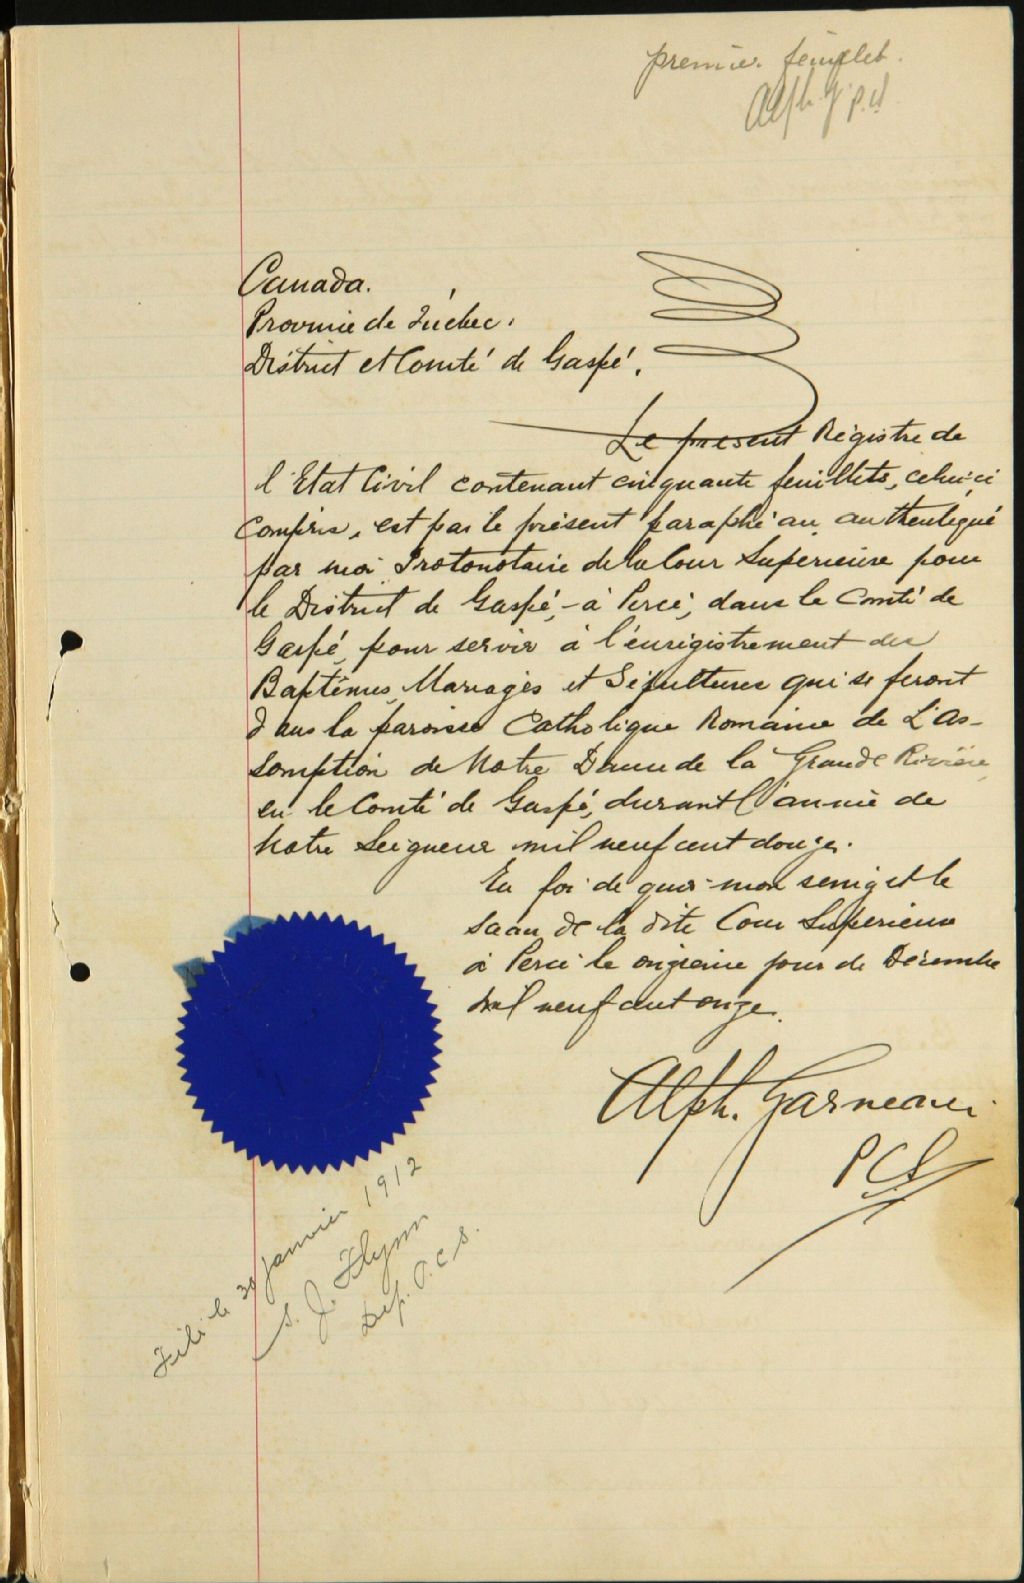 premier feuillet.
Alph. G. P.C.S.
Canada.
Province de Québec.
District et Comté de Gaspé.
Le présent Régistre de
l'Etat Civil contenant cinquante feuillets, celui-ci
compris, est par le présent paraphé au authentiqué
par moi Protonotaire de la Cour Superieure pour
le District de Gaspé, - à Percé, dans le Comté de
Gaspé, pour servir à l'enrigistrement des
Baptêmes, Mariages et Sépultures qui se feront
dans la paroisse Catholique Romaine de L'As-
somption de Notre Dame de la Grande Rivière
en le Comté de Gaspé, durant l'année de
Notre Seigneur mil neuf cent douze.
En foi de quoi mon seing et le
sceau de la dite Cour Superieure
à Percé le onzième jour de Décembre
mil neuf cent onze.
Alph. Garneau
P C S
Filé le 30 janvier 1912
S. J. Flynn
Dep. P. C. S.